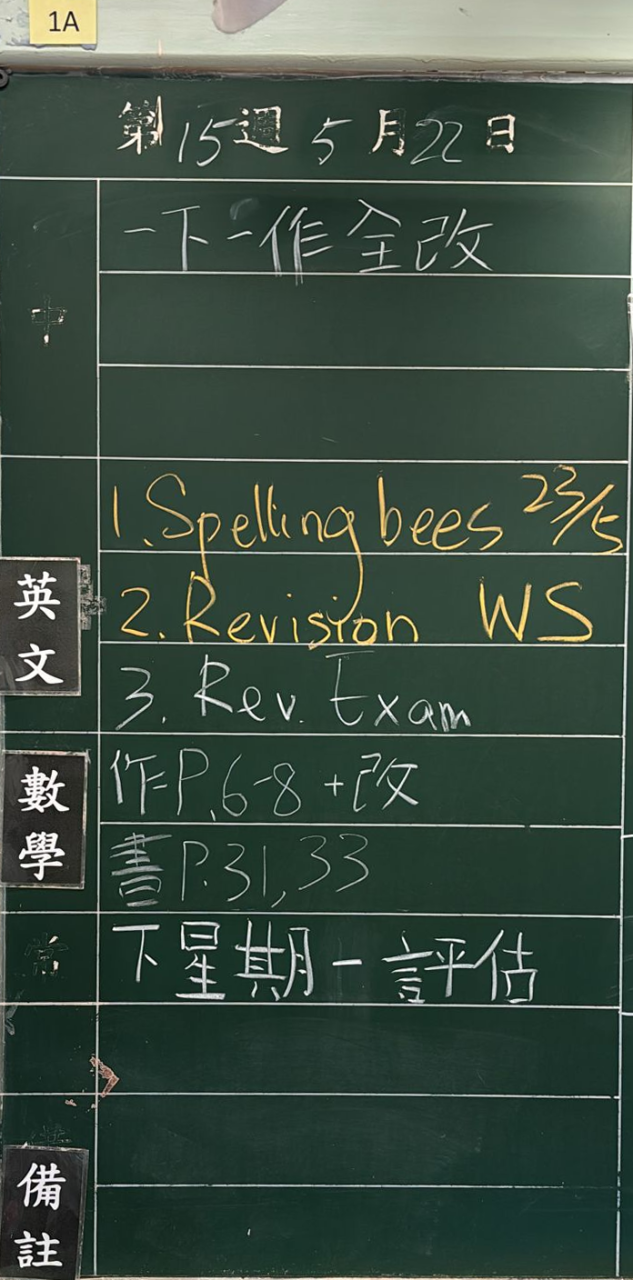 1A
第15週5月22日
中
一下一作全改
英文
1. Spelling bees 23/5
2. Revision WS
3. Rev. Exam
數學
作P.6-8+改
書P.31,33
常
下星期一評估
備註